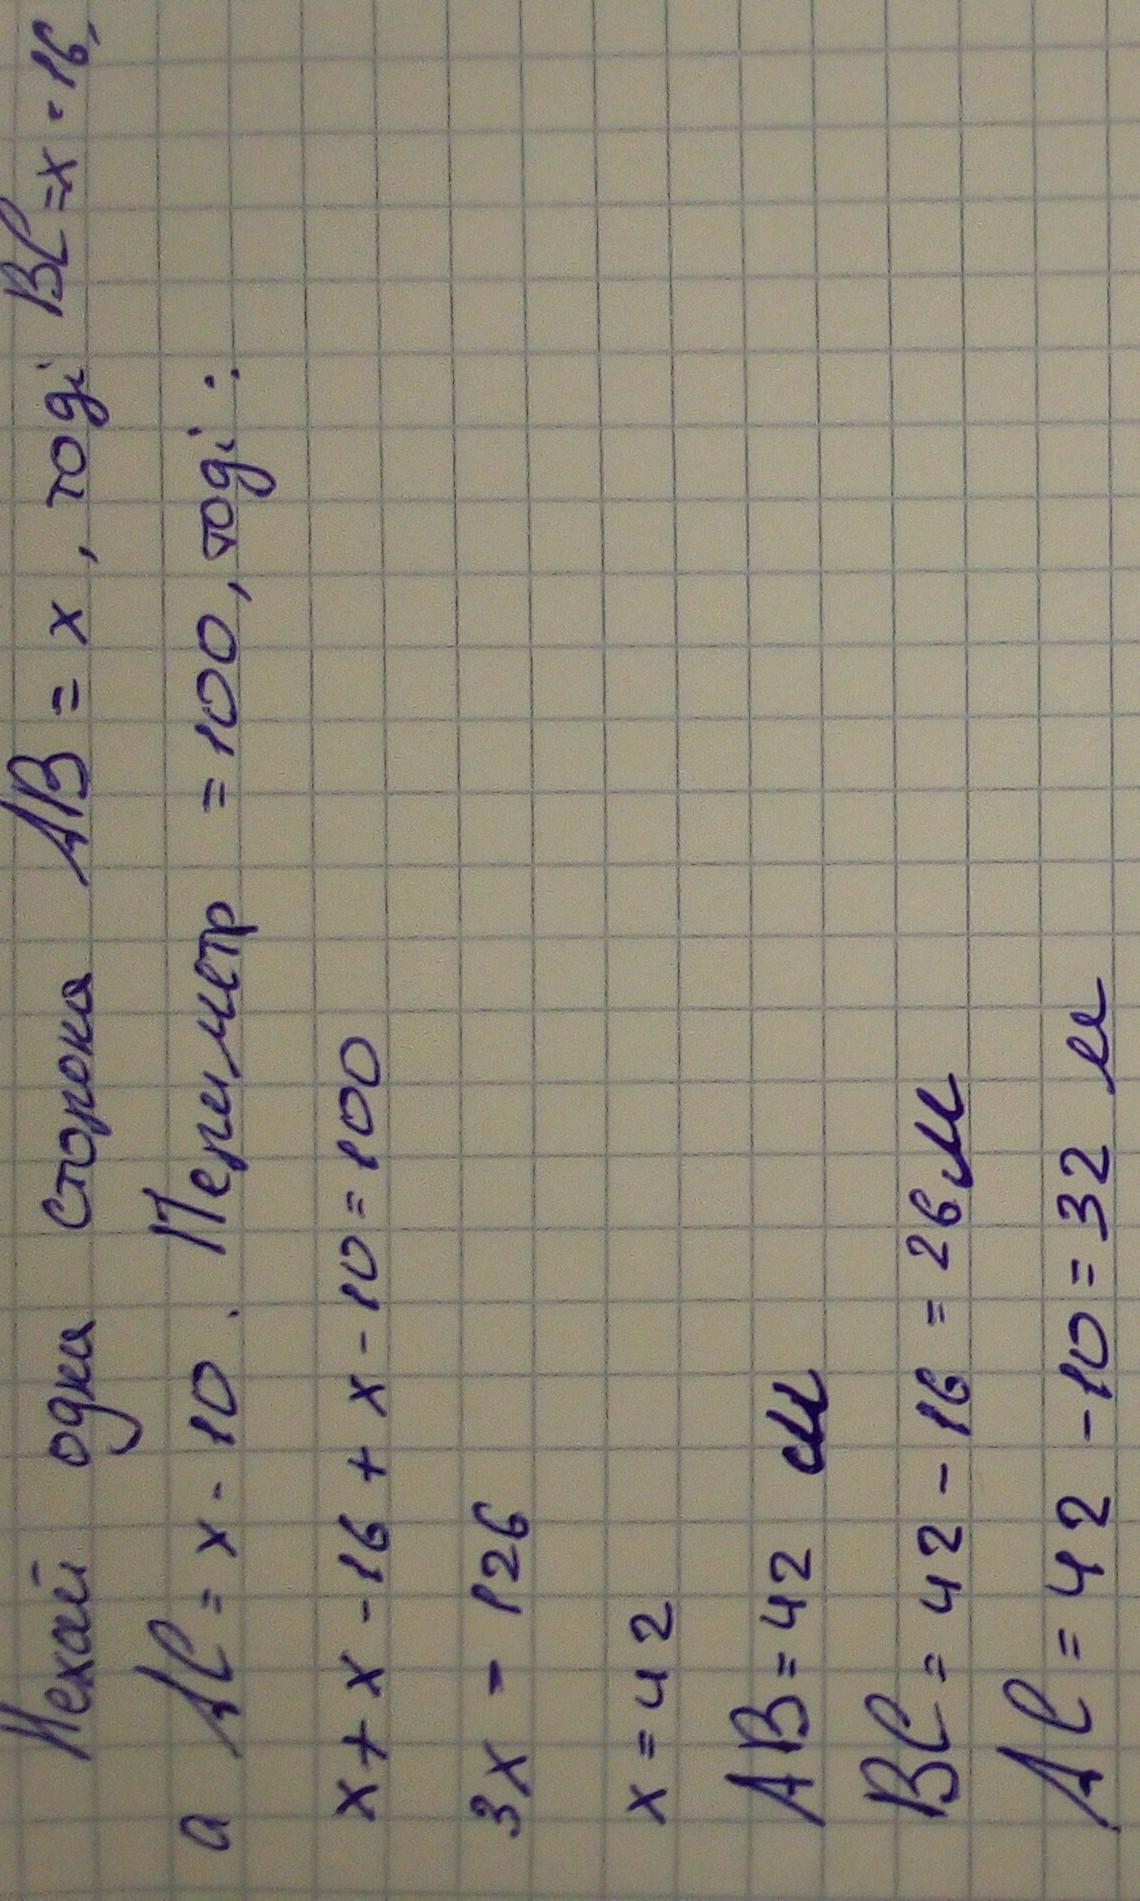 Нехай одна сторона AB = x, тоді BC = x - 16,
а AC = x - 10. Периметр = 100, тоді:
x + x - 16 + x - 10 = 100
3x - 126
x = 42
AB = 42 м
BC = 42 - 16 = 26 м
AC = 42 - 10 = 32 м